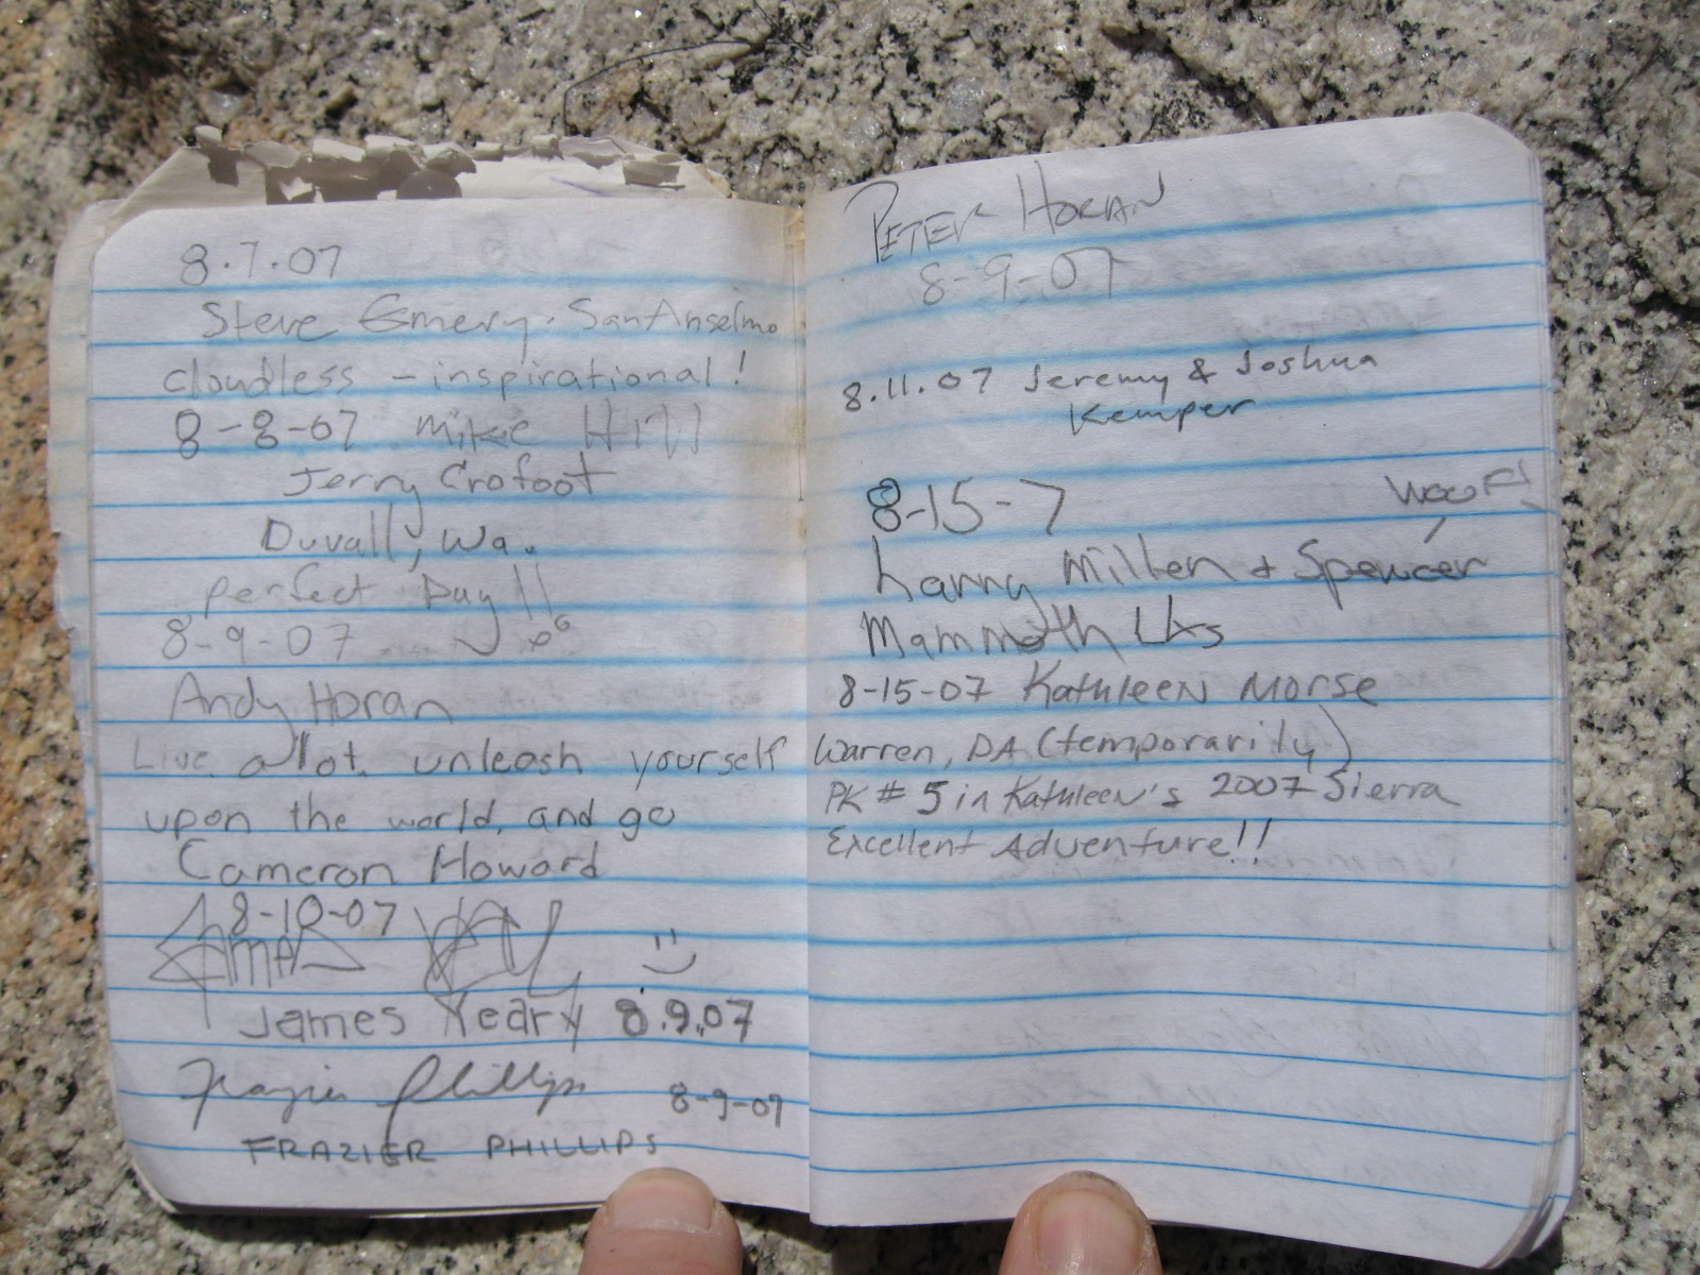 8.7.07
Steve Emery. San Anselmo
cloudless – inspirational!
8-8-07 Mike Hill
Jerry Crofoot
Duvall, Wa.
perfect Day!!
8-9-07
Andy Horan
Live a lot. unleash yourself
upon the world, and go
Cameron Howard
8-10-07
James Yeary 8.9.07
Frazier Phillips 8-9-07
FRAZIER PHILLIPS
PETER HORAN
8-9-07
8.11.07 Jeremy & Joshua
Kemper
8-15-7 Woof!
Larry Miller & Spencer
Mammoth Lks
8-15-07 Kathleen Morse
Warren, PA (temporarily)
PK # 5 in Kathleen's 2007 Sierra
Excellent Adventure!!